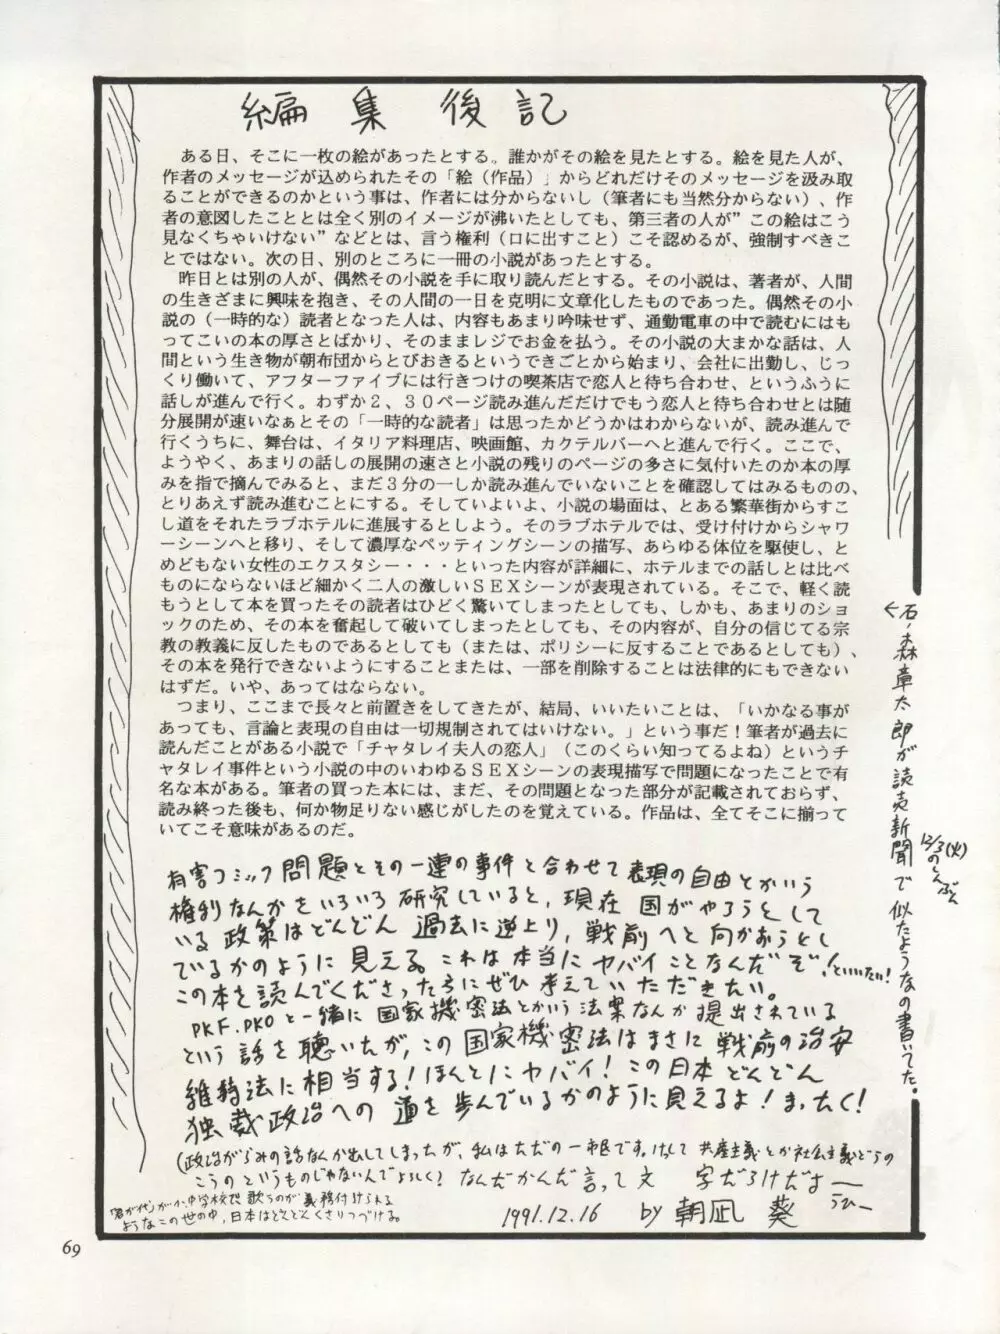 編集後記
ある日、そこに一枚の絵があったとする。誰かがその絵を見たとする。絵を見た人が、
作者のメッセージが込められたその「絵（作品）」からどれだけそのメッセージを汲み取
ることができるのかという事は、作者には分からないし（筆者にも当然分からない）、作
者の意図したこととは全く別のイメージが沸いたとしても、第三者の人が”この絵はこう
見なくちゃいけない”などとは、言う権利（口に出すこと）こそ認めるが、強制すべきこ
とではない。次の日、別のところに一冊の小説があったとする。
昨日とは別の人が、偶然その小説を手に取り読んだとする。その小説は、著者が、人間
の生きざまに興味を抱き、その人間の一日を克明に文章化したものであった。偶然その小
説の（一時的な）読者となった人は、内容もあまり吟味せず、通勤電車の中で読むにはも
ってこいの本の厚さとばかり、そのままレジでお金を払う。その小説の大まかな話は、人
間という生き物が朝布団からとびおきるというできごとから始まり、会社に出勤し、じっ
くり働いて、アフターファイブには行きつけの喫茶店で恋人と待ち合わせ、というふうに
話しが進んで行く。わずか２、３０ページ読み進んだだけでもう恋人と待ち合わせとは随
分展開が速いなぁとその「一時的な読者」は思ったかどうかはわからないが、読み進んで
行くうちに、舞台は、イタリア料理店、映画館、カクテルバーへと進んで行く。ここで、
ようやく、あまりの話しの展開の速さと小説の残りのページの多さに気付いたのか本の厚
みを指で摘んでみると、まだ３分の一しか読み進んでいないことを確認してはみるものの、
とりあえず読み進むことにする。そしていよいよ、小説の場面は、とある繁華街からすこ
し道をそれたラブホテルに進展するとしよう。そのラブホテルでは、受け付けからシャワ
ーシーンへと移り、そして濃厚なペッティングシーンの描写、あらゆる体位を駆使し、と
めどもない女性のエクスタシー・・・といった内容が詳細に、ホテルまでの話しとは比べ
ものにならないほど細かく二人の激しいＳＥＸシーンが表現されている。そこで、軽く読
もうとして本を買ったその読者はひどく驚いてしまったとしても、しかも、あまりのショ
ックのため、その本を奮起して破いてしまったとしても、その内容が、自分の信じてる宗
教の教義に反したものであるとしても（または、ポリシーに反することであるとしても）、
その本を発行できないようにすることまたは、一部を削除することは法律的にもできない
はずだ。いや、あってはならない。
つまり、ここまで長々と前置きをしてきたが、結局、いいたいことは、「いかなる事が
あっても、言論と表現の自由は一切規制されてはいけない。」という事だ！筆者が過去に
読んだことがある小説で「チャタレイ夫人の恋人」（このくらい知ってるよね）というチ
ャタレイ事件という小説の中のいわゆるＳＥＸシーンの表現描写で問題になったことで有
名な本がある。筆者の買った本には、まだ、その問題となった部分が記載されておらず、
読み終った後も、何か物足りない感じがしたのを覚えている。作品は、全てそこに揃って
いてこそ意味があるのだ。
有害コミック問題とその一連の事件と合わせて表現の自由とかいう
権利なんかをいろいろ研究していると、現在国がやろうとして
いる政策はどんどん過去に逆上り、戦前へと向かおうとし
でるかのように見える。これは本当にヤバイことなんだぞ！といいたい！
この本を読んでくださったちにぜひ考えていただきたい。
PKF.PKOと一緒に国家機密法とかいう法案なんか提出されている
という話を聴いたが、この国家機密法はまさに戦前の治安
維持法に相当する！ほんとにヤバイ！この日本どんどん
独裁政治への道を歩んでいるかのように見えるよ！まったく！
（政治がらみの話なんか出してしまったが、私はただの一市民です。けして共産主義とか社会主義どうの
こうのというものじゃないんでよろしく！なんだかんだ言って文字だらけだよー
うひー
「君が代」がか、中学校で歌うのが義務付けられる
ようなこの世の中、日本はどんどんくさりつづける。
1991.12.16 by 朝凪 葵
←石ノ森章太郎が読売新聞で似たようなの書いてた。
12/3(火)
のしんぶん
69